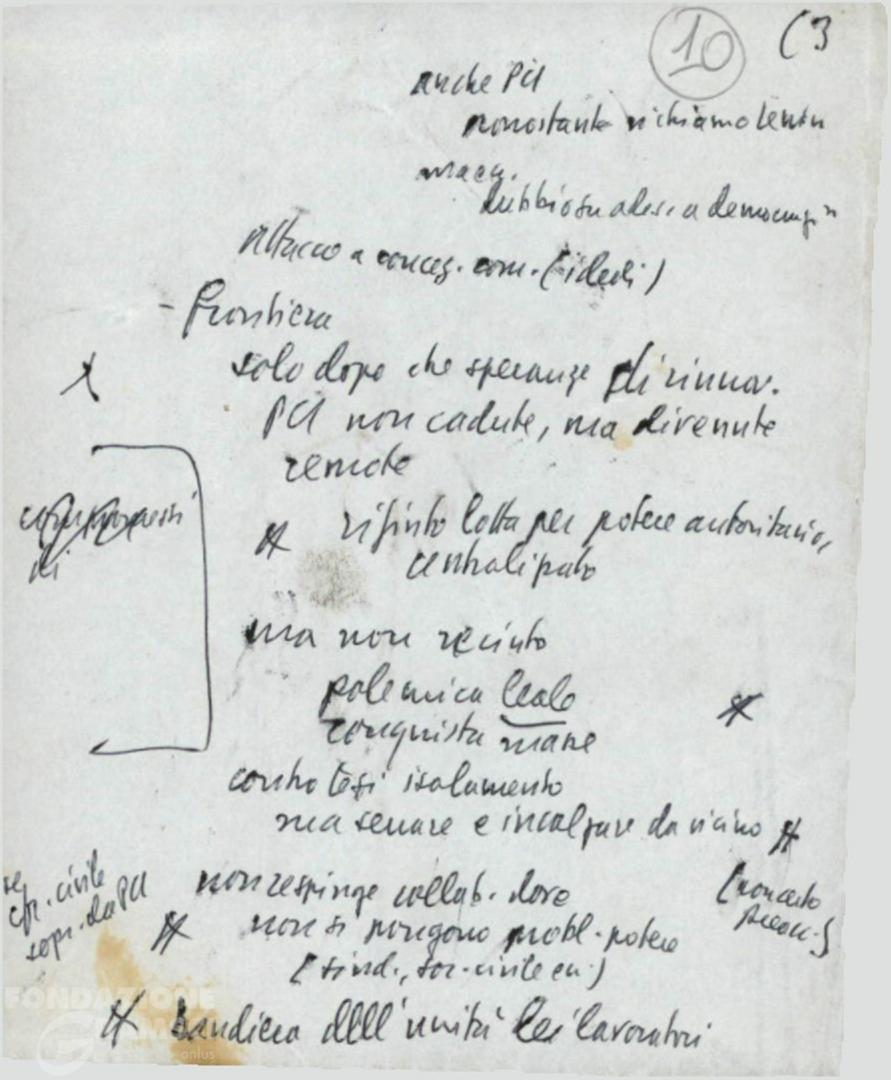 10 (3
anche PCI
nonostante richiamo Lenin
dubbio su ades. a
attacco a concez. com. (ideali)
- frontiera
solo dopo che speranze di rinnov.
PCI non cadute, ma divenute
remote
rifiuto lotta per potere autoritario,
centralizzato
ma non recinto
polemica leale
conquista masse
contro tesi isolamento
ma serrare e incalzare da vicino
non respinge collab. dove
non si pongono probl. potere
(sind., soc. civile ecc.)
se
civile
sopr. da PCI
(non certo
bandiera dell'unità dei lavoratori
FONDAZIONE
onlus